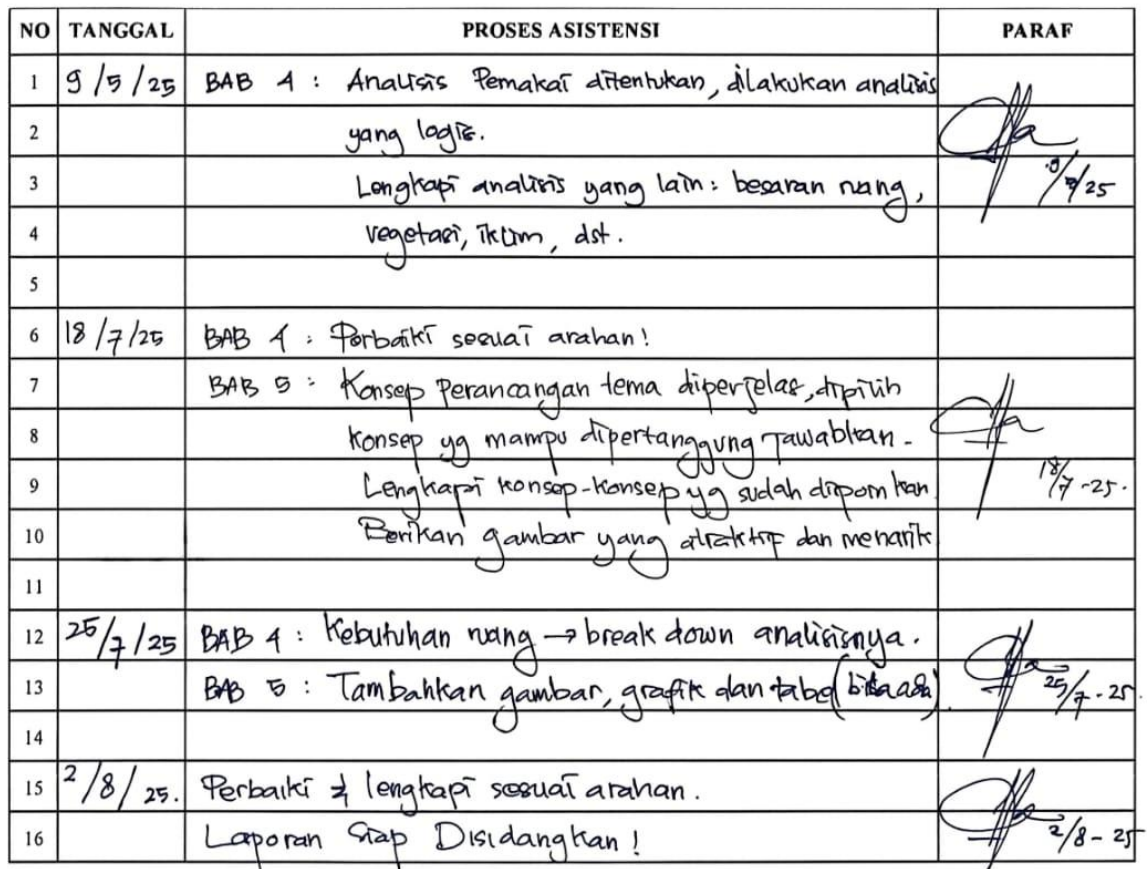 NO TANGGAL PROSES ASISTENSI PARAF
1 9/5/25 BAB 4 : Analisis Pemakai ditentukan, dilakukan analisis
2 yang logis.
3 Lengkapi analisis yang lain : besaran ruang, 9/5/25
4 vegetasi, iklim, dst.
5
6 18/7/25 BAB 4 : Perbaiki sesuai arahan!
7 BAB 5 : Konsep Perancangan tema diperjelas, dipilih
8 Konsep yg mampu dipertanggung jawabkan.
9 Lengkapi konsep-konsep yg sudah dipoinkan 18/7-25.
10 Berikan gambar yang atraktif dan menarik
11
12 25/7/25 BAB 4 : Kebutuhan ruang → break down analisisnya.
13 BAB 5 : Tambahkan gambar, grafik dan tabel (bila ada). 25/7-25.
14
15 2/8/25. Perbaiki & lengkapi sesuai arahan.
16 Laporan Siap Disidangkan! 2/8-25